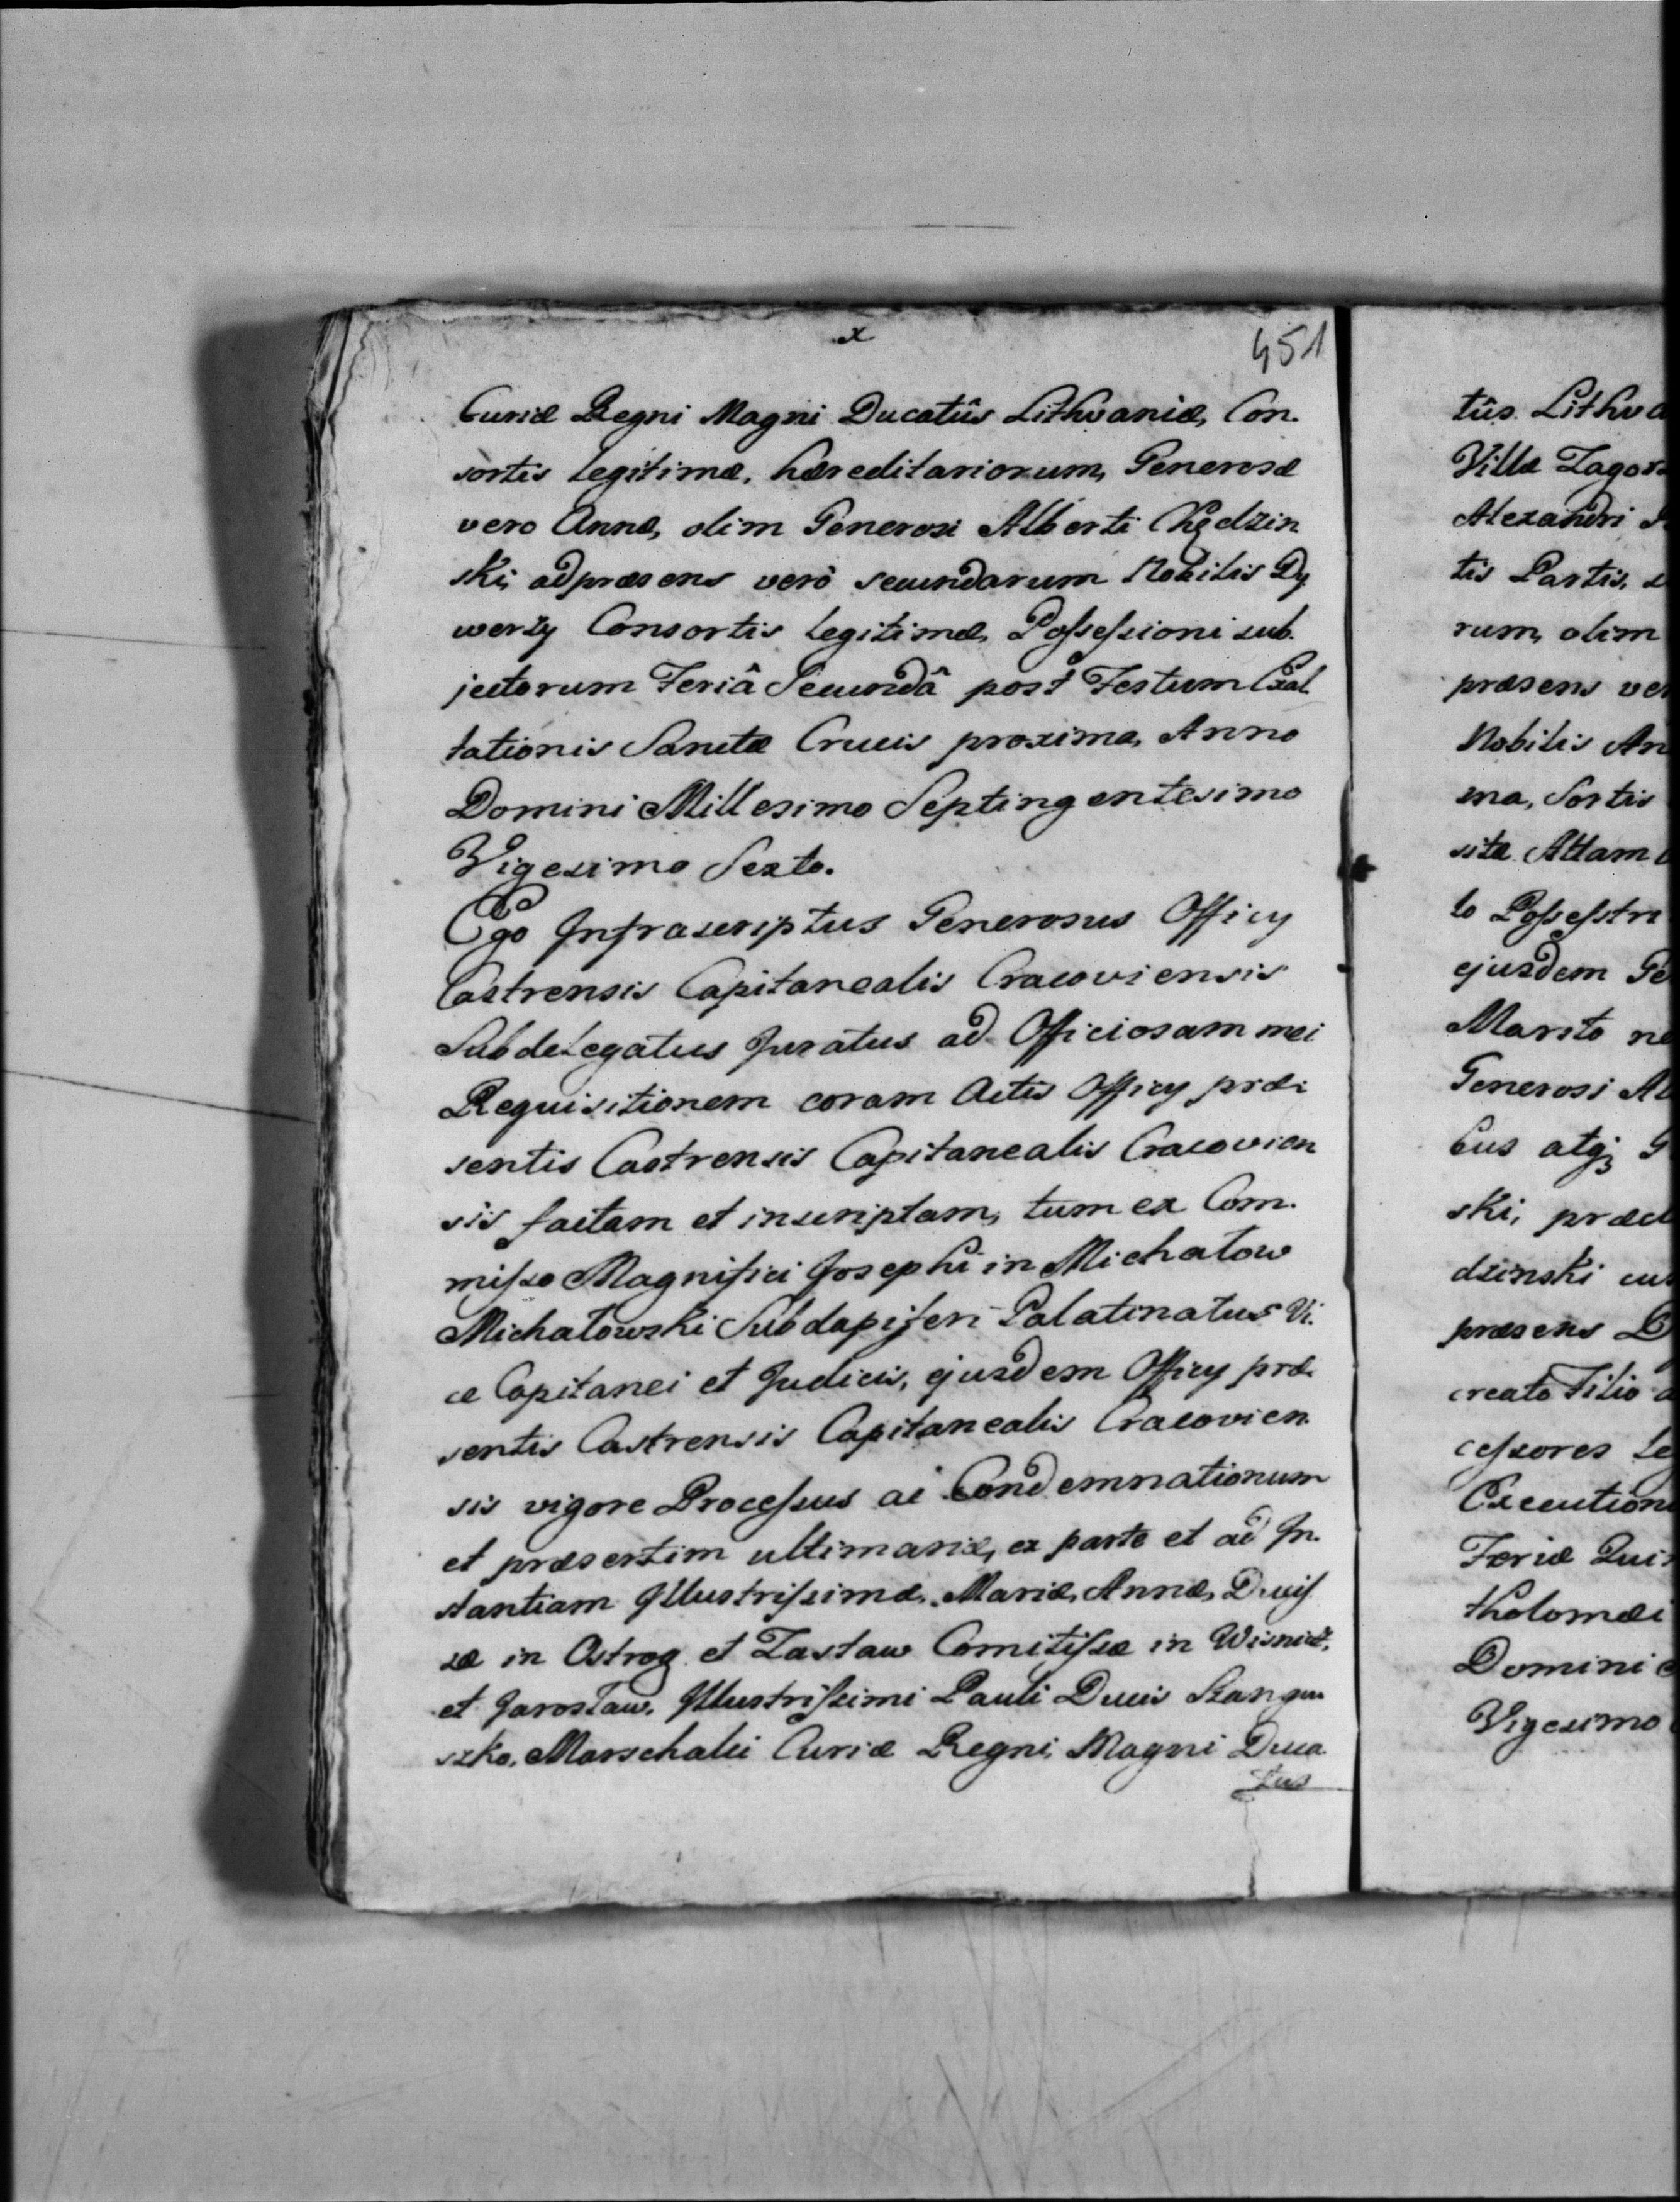 x
451
Curiæ Regni Magni Ducatûs Lithvaniæ, Con.
sortis legitimæ, hæreditariorum, Generosæ
vero Annæ, olim Generosi Alberti Chędzin
ski, ad præsens verò secundarum Nobilis Dy
werty Consortis legitimæ, Poſseſsioni sub.
jectorum Feriâ Secundâ post Festum Exal
tationis Sanctæ Crucis proxima, Anno
Domini Millesimo Septingentesimo
Vigesimo Sexto.
Ego Infrascriptus Generosus Officy
Castrensis Capitanealis Cracoviensis
Subdelegatus Juratus ad Officiosam mei
Requisitionem coram Actis Officy præ
sentis Castrensis Capitanealis Cracovien
sis factam et inscriptam, tum ex Com.
miſso Magnifici Josephi in Michałow
Michałowski Subdapiferi Palatinatus Vi.
ce Capitanei et Judicis, ejusdem Officy præ
sentis Castrensis Capitanealis Cracovien.
sis vigore Proceſsus ac Condemnationum
et præsertim ultimariæ, ex parte et ad In.
stantiam Illustriſsimæ, Mariæ, Annæ, Duciſ
sæ in Ostrog et Zasław Comitiſsæ in Wisnicz,
et Jarosław, Illustriſsimi Pauli Ducis Sangu
szko, Marschalci Curiæ Regni, Magni Duca
tus
tûs Lithva
Villæ Zagorz
Alexandri
tis Partis,
rum, olim
præsens ve
Nobilis An
ma, Sortis
sitæ Attam
lo Poſseſstri
ejusdem Ge
Marito ne
Generosi Al
bus atqꝫ G
ski, præd
dzinski cu
præsens D
creato Filio
ceſsores le
Execution
Feriæ Qui
tholomæi
Domini
Vigesimo